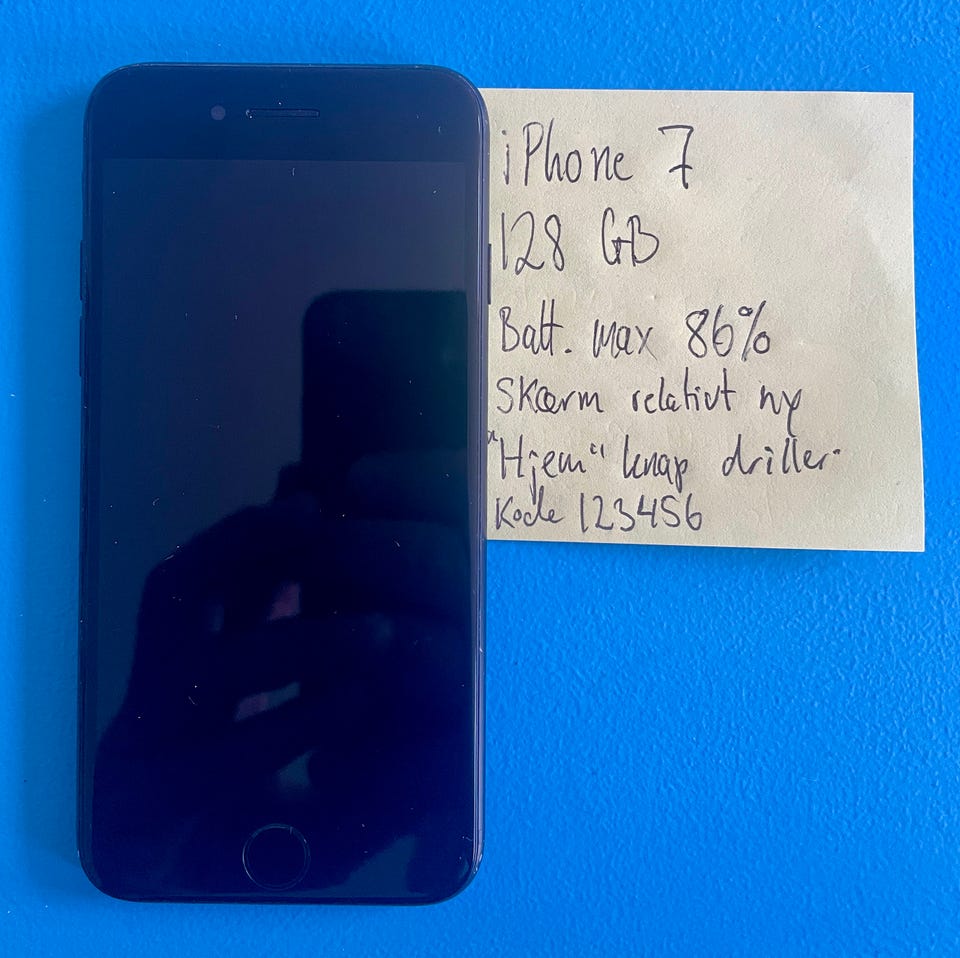 iPhone 7
128 GB
Batt. max 86%
Skærm relativt ny
"Hjem" knap driller.
Kode 123456